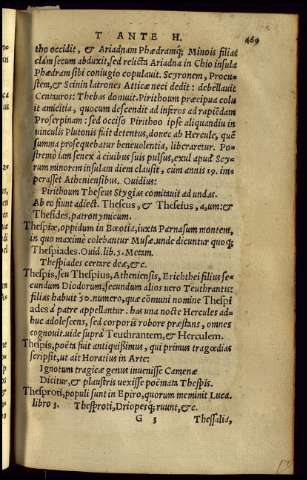 T ANTE H. 469
tho occidit, & Ariadnam Phædramq; Minois filias
clàm secum abduxit, sed relicta Ariadna in Chio insula
Phædram sibi coniugio copulauit. Scyronem, Procu-
stem, & Scinin latrones Atticæ neci dedit: debellauit
Centauros: Thebas domuit. Pirithoum præcipua colu
it amicitia, quocum descendit ad inferos ad rapiẽdam
Proserpinam: sed occiso Pirithoo ipse aliquandiu in
uinculis Plutonis fuit detentus, donec ab Hercule, quẽ
summa prosequebatur beneuolentia, liberaretur. Po-
stremò iam senex à ciuibus suis pulsus, exul apud Scy-
rum minorem insulam diem clausit, cum annis 29. im-
perasset Atheniensibus. Ouidius:
Pirithoum Theseus Stygias comitauit ad undas.
Ab eo fiunt adiect. Theseus, & Theseius, a, um: &
Thesides, patronymicum.
Thespiæ, oppidum in Bœotia, iuxta Parnasum montem,
in quo maximè colebantur Musæ, unde dicuntur quoq;
Thespiades. Ouid. lib. 5. Metam.
Thespiades certare deæ, & c.
Thespis, seu Thespius, Atheniensis, Erichthei filius: se-
cundum Diodorum, secundum alios uero Teuthrantis:
filias habuit 50. numero, quæ cõmuni nomine Thespi
ades à patre appellantur. has una nocte Hercules ad-
huc adolescens, sed corporis robore præstans, omnes
cognouit. uide suprà Teuthrantem, & Herculem.
Thespis, poëta fuit antiquißimus, qui primus tragœdias
scripsit, ut ait Horatius in Arte:
Ignotum tragicæ genus inuenisse Camenæ
Dicitur, & plaustris uexisse poëmata Thespis.
Thesproti, populi sunt in Epiro, quorum meminit Luca.
libro 3. Thesproti, Dryopesq; ruunt, & c.
G 3 Thessalia,